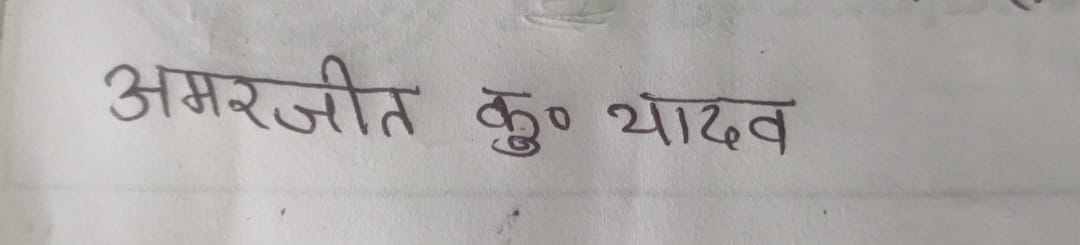 अमरजीत कु० यादव